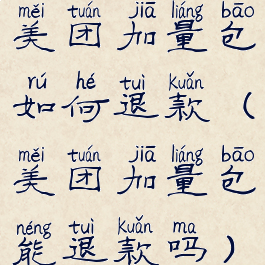 měi tuán jiā liáng bāo
美团加量包
rú hé tuì kuǎn
如何退款（
měi tuán jiā liáng bāo
美团加量包
néng tuì kuǎn ma
能退款吗）